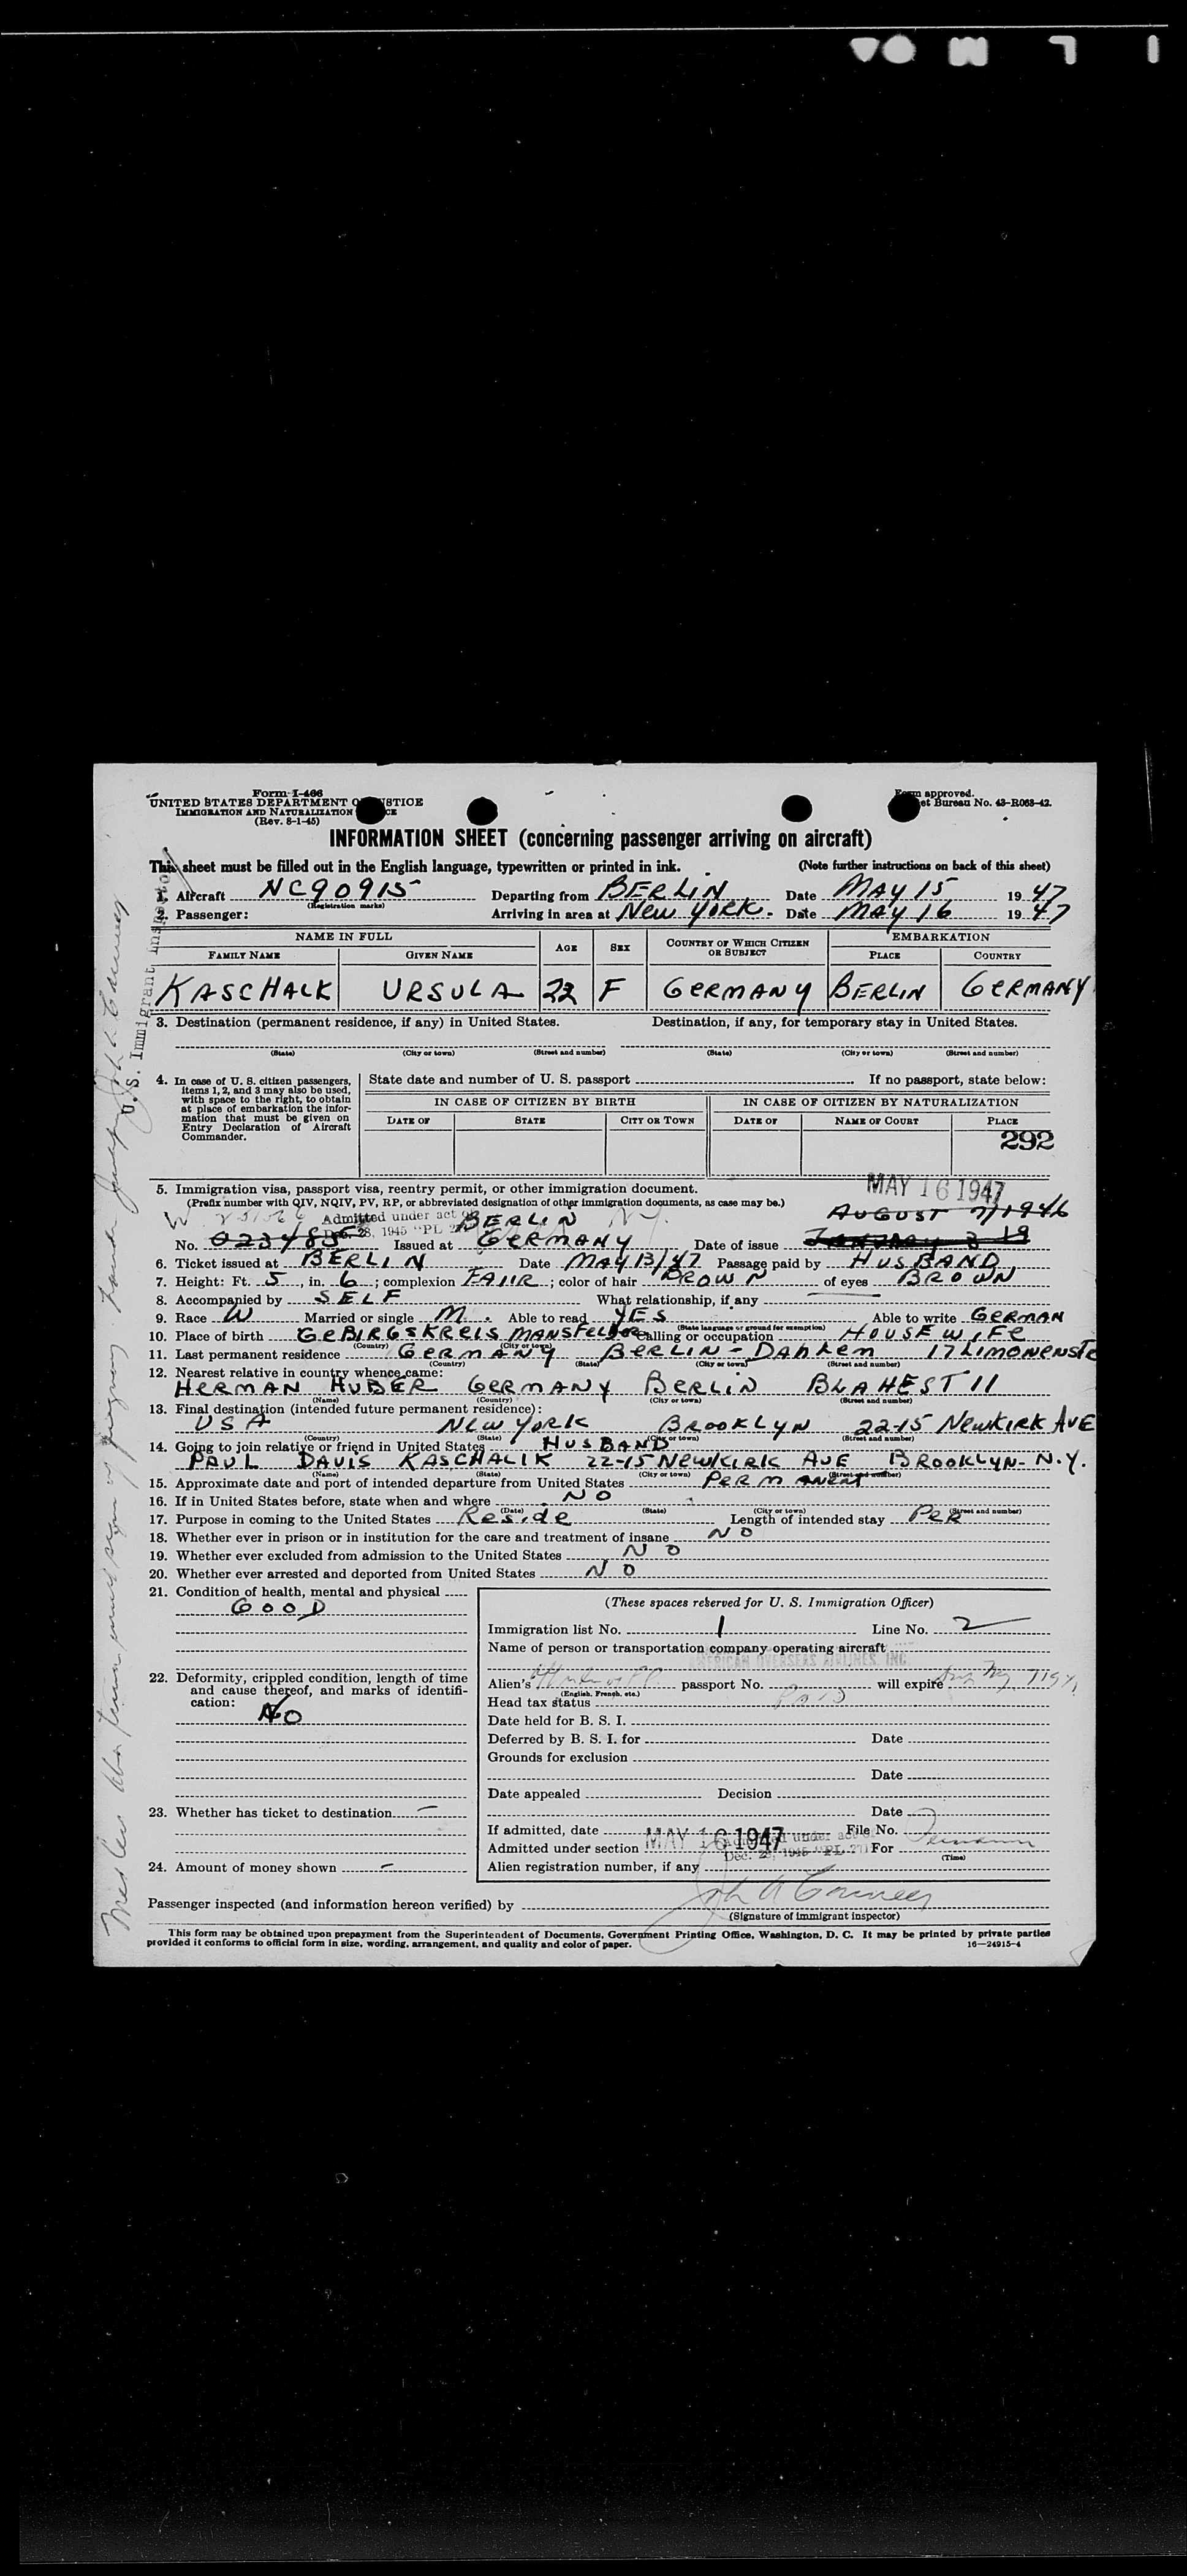 Form I-466
UNITED STATES DEPARTMENT OF JUSTICE
IMMIGRATION AND NATURALIZATION
(Rev. 8-1-45)
Form approved.
Bureau No. 43-R063-42.
INFORMATION SHEET (concerning passenger arriving on aircraft)
This sheet must be filled out in the English language, typewritten or printed in ink. (Note further instructions on back of this sheet)
1. Aircraft NC90915 Departing from BERLIN Date MAY 15 1947
(Registration marks)
2. Passenger: Arriving in area at NEW YORK. Date MAY 16 1947
NAME IN FULL AGE SEX COUNTRY OF WHICH CITIZEN OR SUBJECT EMBARKATION
FAMILY NAME GIVEN NAME PLACE COUNTRY
KASCHALK URSULA 22 F GERMANY BERLIN GERMANY
3. Destination (permanent residence, if any) in United States. Destination, if any, for temporary stay in United States.
(State) (City or town) (Street and number) (State) (City or town) (Street and number)
4. In case of U. S. citizen passengers, items 1, 2, and 3 may also be used, with space to the right, to obtain at place of embarkation the information that must be given on Entry Declaration of Aircraft Commander.
State date and number of U. S. passport If no passport, state below:
IN CASE OF CITIZEN BY BIRTH IN CASE OF CITIZEN BY NATURALIZATION
DATE OF STATE CITY OR TOWN DATE OF NAME OF COURT PLACE
292
5. Immigration visa, passport visa, reentry permit, or other immigration document.
MAY 16 1947
(Prefix number with QIV, NQIV, PV, RP, or abbreviated designation of other immigration documents, as case may be.)
Admitted under act of Dec. 28, 1945 "PL BERLIN N.Y. AUGUST 7/1946
No. 023485 Issued at GERMANY Date of issue JANUARY 3 19
6. Ticket issued at BERLIN Date MAY 13/47 Passage paid by HUSBAND
7. Height: Ft. 5, in. 6; complexion FAIIR; color of hair BROWN of eyes BROWN
8. Accompanied by SELF What relationship, if any
9. Race W Married or single M. Able to read YES Able to write GERMAN
(State language or ground for exemption)
10. Place of birth GEBIRGSKREIS MANSFELD Calling or occupation HOUSEWIFE
(Country) (City or town)
11. Last permanent residence GERMANY BERLIN-DAHLEM 17 LIMONENSTR
(Country) (State) (City or town) (Street and number)
12. Nearest relative in country whence came:
HERMAN HUBER GERMANY BERLIN BLAHEST 11
(Name) (Country) (City or town) (Street and number)
13. Final destination (intended future permanent residence):
USA NEW YORK BROOKLYN 22-15 NEWKIRK AVE
(Country) (State) (City or town) (Street and number)
14. Going to join relative or friend in United States HUSBAND
PAUL DAVIS KASCHALIK 22-15 NEWKIRK AVE BROOKLYN-N.Y.
(Name) (State) (City or town) (Street and number)
15. Approximate date and port of intended departure from United States PERMANENT
16. If in United States before, state when and where NO
(Date) (State) (City or town) (Street and number)
17. Purpose in coming to the United States Reside Length of intended stay PER
18. Whether ever in prison or in institution for the care and treatment of insane NO
19. Whether ever excluded from admission to the United States NO
20. Whether ever arrested and deported from United States NO
21. Condition of health, mental and physical
GOOD
22. Deformity, crippled condition, length of time and cause thereof, and marks of identification:
NO
23. Whether has ticket to destination —
24. Amount of money shown —
(These spaces reserved for U. S. Immigration Officer)
Immigration list No. 1 Line No. 2
Name of person or transportation company operating aircraft
AMERICAN OVERSEAS AIRLINES, INC.
Alien's passport No. will expire
(English, French, etc.)
Head tax status Paid
Date held for B. S. I.
Deferred by B. S. I. for Date
Grounds for exclusion
Date
Date appealed Decision
Date
If admitted, date MAY 16 1947 File No.
Admitted under section Admitted under act Dec. 28, 1945 "PL 271 For
(Time)
Alien registration number, if any
Passenger inspected (and information hereon verified) by
(Signature of immigrant inspector)
This form may be obtained upon prepayment from the Superintendent of Documents, Government Printing Office, Washington, D. C. It may be printed by private parties
provided it conforms to official form in size, wording, arrangement, and quality and color of paper. 16—24915-4
U.S. Immigrant Inspector